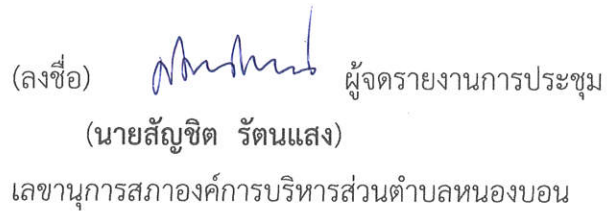 (ลงชื่อ) ผู้จดรายงานการประชุม
(นายสัญชิต รัตนแสง)
เลขานุการสภาองค์การบริหารส่วนตำบลหนองบอน